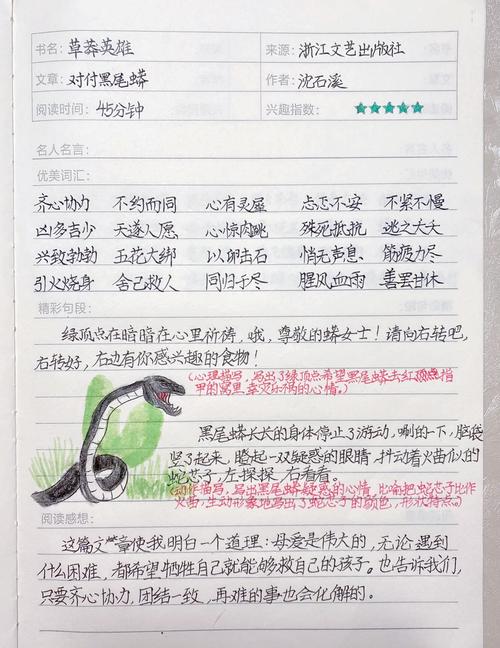 书名：草莽英雄 来源：浙江文艺出版社
文章：对付黑尾蟒 作者：沈石溪
阅读时间：45分钟 兴趣指数：★★★★★
名人名言：
优美词汇：
齐心协力 不约而同 心有灵犀 忐忑不安 不紧不慢
凶多吉少 天遂人愿 心惊肉跳 殊死抵抗 逃之夭夭
兴致勃勃 五花大绑 以卵击石 悄无声息 筋疲力尽
引火烧身 舍己救人 同归于尽 腥风血雨 善罢甘休
精彩句段：
绿顶点在暗暗在心里祈祷，哦，尊敬的蟒女士！请向右转吧，
右转好，右边有你感兴趣的食物！
(心理描写，写出了绿顶点希望黑尾蟒去红顶点指
甲的窝里幸灾乐祸的心情。)
黑尾蟒长长的身体停止了游动，唰的一下，脑袋
竖了起来，瞪起一双疑惑的眼睛，抖动着火苗似的
蛇芯子，左探探，右看看。
(动作描写，写出黑尾蟒疑惑的心情，比喻把蛇芯子比作
火苗，生动形象地写出了蛇芯子的颜色，形状特点。)
阅读感想：
这篇文章使我明白一个道理：母爱是伟大的，无论遇到
什么困难，都希望牺牲自己就能够救自己的孩子。也告诉我们，
只要齐心协力，团结一致，再难的事也会化解的。